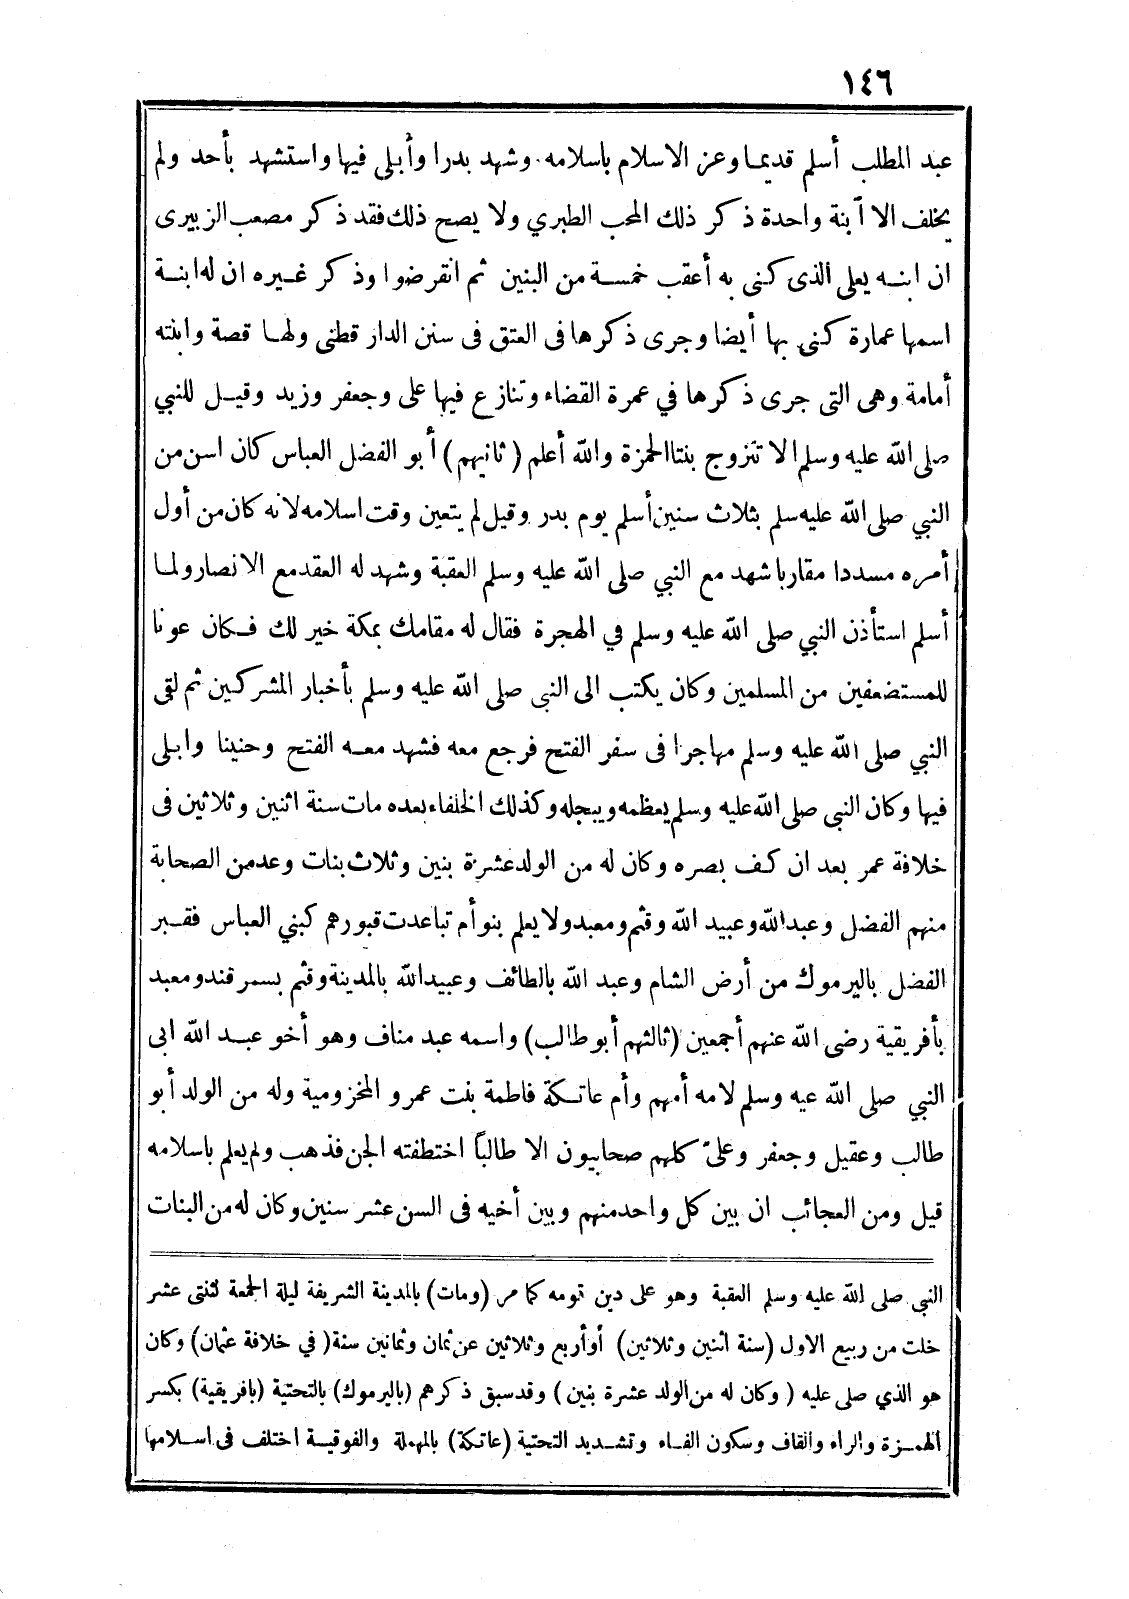 ١٤٦
عبد المطلب أسلم قديما وعز الاسلام باسلامه وشهد بدرا وأبلى فيها واستشهد بأحد ولم
يخلف الا آبنة واحدة ذكر ذلك المحب الطبري ولا يصح ذلك فقد ذكر مصعب الزبيرى
ان ابنه يعلى الذى كنى به أعقب خمسة من البنين ثم انقرضوا وذكر غيره ان له ابنة
اسمها عمارة كنى بها أيضا وجرى ذكرها فى العتق فى سنن الدار قطنى ولها قصة وابنته
أمامة وهى التى جرى ذكرها في عمرة القضاء وتنازع فيها على وجعفر وزيد وقيل للنبي
صلى الله عليه وسلم الا تتزوج بنتاالحمزة والله أعلم (ثانيهم) أبو الفضل العباس كان اسن من
النبي صلى الله عليه سلم بثلاث سنين أسلم يوم بدر وقيل لم يتعين وقت اسلامه لانه كان من أول
أمره مسددا مقاربا شهد مع النبي صلى الله عليه وسلم العقبة وشهد له العقد مع الانصار ولما
أسلم استأذن النبي صلى الله عليه وسلم في الهجرة فقال له مقامك بمكة خير لك فكان عونا
للمستضعفين من المسلمين وكان يكتب الى النبى صلى الله عليه وسلم بأخبار المشركين ثم لقى
النبي صلى الله عليه وسلم مهاجرا فى سفر الفتح فرجع معه فشهد معه الفتح وحنينا وابلى
فيها وكان النبي صلى الله عليه وسلم يعظمه ويبجله وكذلك الخلفاء بعده مات سنة اثنين وثلاثين فى
خلافة عمر بعد ان كف بصره وكان له من الولد عشرة بنين وثلاث بنات وعد من الصحابة
منهم الفضل وعبد الله وعبيد الله وقثم ومعبد ولا يعلم بنو أم تباعدت قبورهم كبني العباس فقبر
الفضل باليرموك من أرض الشام وعبد الله بالطائف وعبيدالله بالمدينة وقثم بسمرقند ومعبد
بأفريقية رضى الله عنهم أجمعين (ثالثهم أبو طالب) واسمه عبد مناف وهو أخو عبد الله ابى
النبي صلى الله عيه وسلم لامه أمهم وأم عاتكة فاطمة بنت عمرو المخزومية وله من الولد أبو
طالب وعقيل وجعفر وعلىّ كلهم صحابيون الا طالباً اختطفته الجن فذهب ولم يعلم باسلامه
قيل ومن العجائب ان بين كل واحد منهم وبين أخيه فى السن عشر سنين وكان له من البنات
النبى صلى الله عليه وسلم العقبة وهو على دين قومه كما مر (ومات) بالمدينة الشريفة ليلة الجمعة لثنتى عشر
خلت من ربيع الاول (سنة اثنين وثلاثين) أو أربع وثلاثين عن ثمان وثمانين سنة (في خلافة عثمان) وكان
هو الذي صلى عليه (وكان له من الولد عشرة بنين) وقد سبق ذكرهم (باليرموك) بالتحتية (بافريقية) بكسر
الهمزة والراء والقاف وسكون الفاء وتشديد التحتية (عاتكة) بالمهملة والفوقية اختلف فى اسلامها